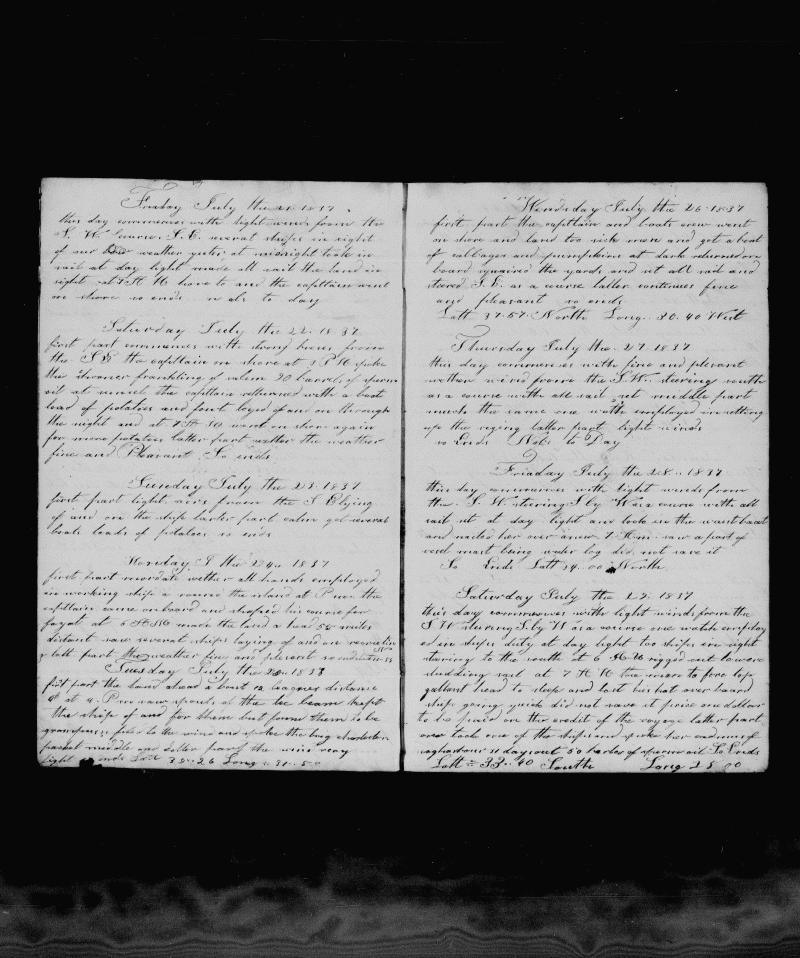 Friday July the 21 1837
this day commences with light winds from the
N. W. Course S. E. several ships in sight
of our weather yester at midnight took in
sail at day light made all sail the land in
sight at 9 A M hove to and the capttain went
on shore so ends
Saturday July the 22. 1837
first part commences with strong breses from
the the capttain on shore at 3 P M spoke
the shroner frankling of salem 20 barrels of sperm
oil at sunset the capttain returned with a boat
load of potatoes and fout layed of and on through
the night and at 7 A M went on shore again
for more potatoes latter part wether the weather
fine and Pleasant So ends
Sunday July the 23. 1837
first part light airs from the S E lying
of and on the ship latter part calm got several
boats loads of potatoes so ends
Monday J the 24 1837
first part mordate wether all hands employed
in working ship a round the island at P m the
capttain came on board and shaped his course for
fayal at 6 A M made the land a head 55 miles
distant saw several ships laying of and on
latt part the weather fine and plesent so ends
Tuesday July the 25 1837
first part the land ahead a bout 12 leagues distance
at 4 P m saw spouts of the lee beam kept
the ship of and for them but found them to be
grampuses to the wind and spoke the brug
middle and latter part the wind very
light so ends Latt 38..26 Long 31..50
Wensday July the 26 1837
first part the capttain and boats crew went
on shore and land too sick men and got a boat
of cabbages and pumpkins at dark returned on
board squared the yards and set all sail and
steered S. E. as a course latter continues fine
and pleasant so ends
Latt 37..57. North Long. 30..40 West
Thursday July the 27. 1837
this day commences with fine and plesent
wether wind from the S. W. stering south
as a course with all sail set middle part
much the same one wath employed in setting
up the riging latter part light winds
so Ends Nobs to Day
Friaday July the 28.. 1837
this day commences with light winds from
the S. W. stering S by W as a course with all
sail set at day light and took in the waist boat
and nailed her over anew 7 A m. saw a part of
vesel mast being under log did not save it
So Ends Latt 34..00 North
Saturday July the 29. 1837
this day commences with light winds from the
S W stering S. by W as a course one watch employ
ed in ships duty at day light too ships in sight
stering to the south at 6 A M riged out lower
studding sail at 7 A M hu mizen to fore top
gallant head to sleep and lost his hat over board
ship going quick did not save it price one dollar
to be paid on the credit of the voyage latter part
over took one of the ships and spoke her
sagharbour 11 days out 50 barles of sperm oil So Ends
Latt = 33..40 South Long 28 00